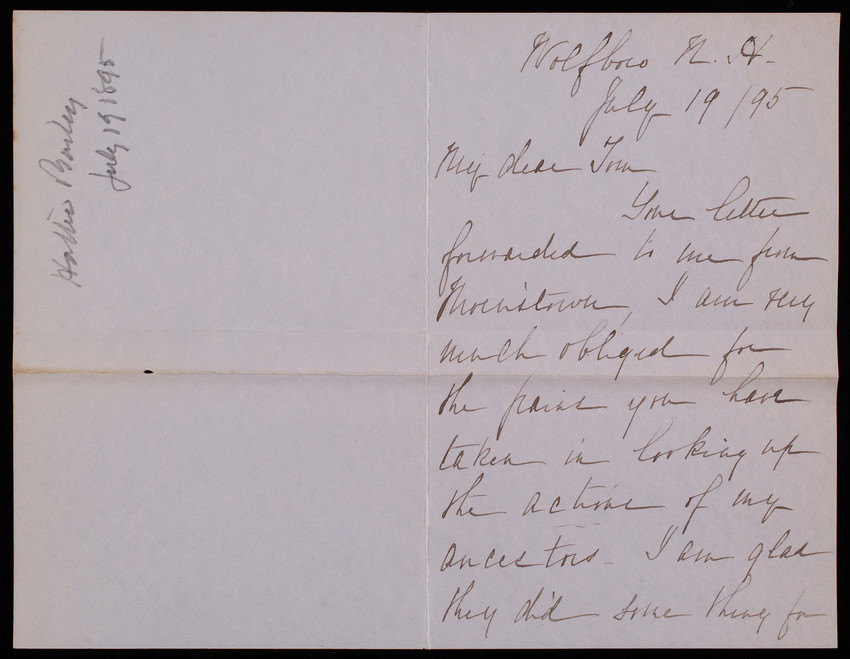 Hattie Bailey
July 19 1895
Wolfboro N. H.
July 19 /95
My dear Tom
Your letter
forwarded to me from
Morristown, I am very
much obliged for
the pains you have
taken in looking up
the actions of my
ancestors - I am glad
they did some thing for